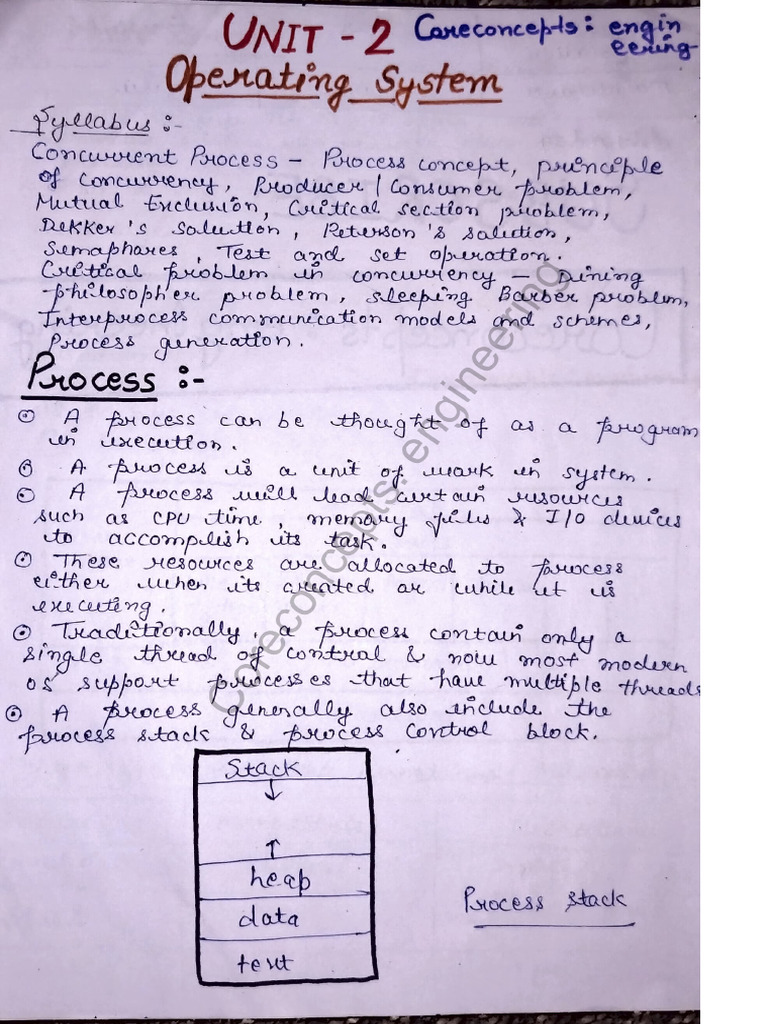 UNIT - 2 Coreconcepts: engin
eering
Operating System
Syllabus :-
Concurrent Process - Process concept, principle
of concurrency, Producer / Consumer problem,
Mutual Exclusion, Critical section problem,
Dekker's solution, Peterson's solution,
Semaphares, Test and set operation.
Critical problem in concurrency - Dining
philosopher problem, sleeping Barber problem,
Interprocess communication models and schemes,
Process generation.
Process :-
A process can be thought of as a program
in execution.
A process is a unit of work in system.
A process will lead certain resources
such as CPU time, memory files & I/O devices
to accomplish its task.
These resources are allocated to process
either when its created or while it is
executing.
Traditionally, a process contain only a
single thread of control & now most modern
OS support processes that have multiple threads
A process generally also include the
process stack & process control block.
Stack
↓
↑
heap
data
text
Process stack
Coreconcepts: engineering